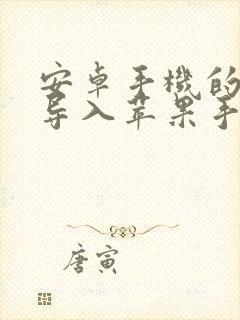 安卓手機的
导入苹果手
唐寅